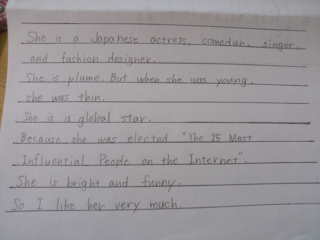 She is a Japanese actress, comedian, singer,
and fashion designer.
She is plume. But when she was young,
she was thin.
She is a global star.
Because she was elected "The 25 Most
Influential People on the Internet".
She is bright and funny.
So I like her very much.